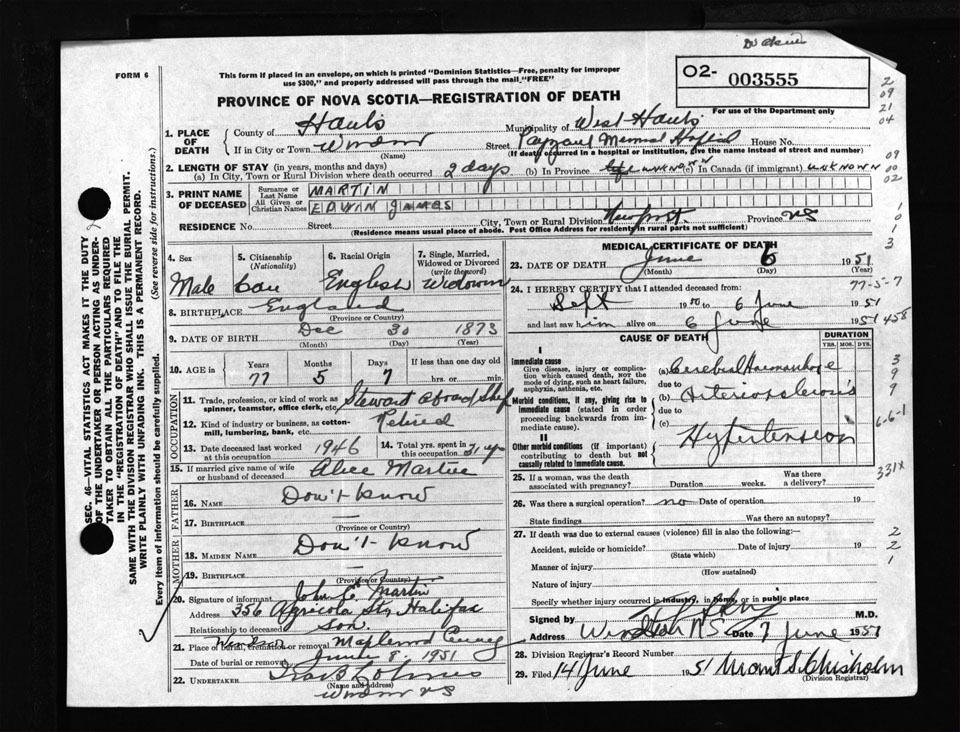 FORM 6
This form if placed in an envelope, on which is printed "Dominion Statistics—Free, penalty for improper
use $300," and properly addressed will pass through the mail "FREE"
02- 003555
For use of the Department only
PROVINCE OF NOVA SCOTIA—REGISTRATION OF DEATH
1. PLACE OF DEATH
County of Hants Municipality of West Hants
If in City or Town Windsor Street Payzant Memorial Hospital House No.
(Name) (If death occurred in a hospital or institution, give the name instead of street and number)
2. LENGTH OF STAY (in years, months and days)
(a) In City, Town or Rural Division where death occurred 2 days (b) In Province UNKNOWN (c) In Canada (if immigrant) UNKNOWN
3. PRINT NAME OF DECEASED
Surname or Last Name MARTIN
All Given or Christian Names EDWIN JAMES
RESIDENCE No. Street City, Town or Rural Division Newport Province NS
(Residence means usual place of abode. Post Office Address for residents in rural parts not sufficient)
4. Sex Male
5. Citizenship (Nationality) Can
6. Racial Origin English
7. Single, Married, Widowed or Divorced (write the word) Widower
8. BIRTHPLACE England
(Province or Country)
9. DATE OF BIRTH Dec 30 1873
(Month) (Day) (Year)
10. AGE in Years Months Days If less than one day old
77 5 7 hrs. or min.
OCCUPATION
11. Trade, profession, or kind of work as spinner, teamster, office clerk, etc. Steward aboard Ship
12. Kind of industry or business, as cotton-mill, lumbering, bank, etc. Retired
13. Date deceased last worked at this occupation 1946
14. Total yrs. spent in this occupation 31 yr
15. If married give name of wife or husband of deceased Alice Martin
FATHER
16. Name Don't know
17. Birthplace —
(Province or Country)
MOTHER
18. Maiden Name Don't know
19. Birthplace —
(Province or Country)
20. Signature of informant John E. Martin
Address 356 Agricola St, Halifax
Relationship to deceased Son.
21. Place of burial, cremation or removal Windsor Maplewood Cemetery
Date of burial or removal June 8, 1951
22. UNDERTAKER
(Name and address)
Windsor NS
MEDICAL CERTIFICATE OF DEATH
23. DATE OF DEATH June 6 1951
(Month) (Day) (Year)
24. I HEREBY CERTIFY that I attended deceased from:
Sept 1950 to 6 June 1951
and last saw him alive on 6 June 1951
CAUSE OF DEATH
DURATION
YRS. MOS. DYS.
I
Immediate cause
Give disease, injury or complication which caused death, not the mode of dying, such as heart failure, asphyxia, asthenia, etc.
(a) Cerebral Haemorrhage
due to
Morbid conditions, if any, giving rise to immediate cause (stated in order proceeding backwards from immediate cause).
(b) Arteriosclerosis
due to
(c)
II
Other morbid conditions (if important) contributing to death but not causally related to immediate cause.
Hypertension
25. If a woman, was the death associated with pregnancy? Duration weeks. Was there a delivery?
26. Was there a surgical operation? no Date of operation 19
State findings Was there an autopsy?
27. If death was due to external causes (violence) fill in also the following:—
Accident, suicide or homicide? Date of injury 19
(State which)
Manner of injury
(How sustained)
Nature of injury
Specify whether injury occurred in industry, in home, or in public place
Signed by M.D.
Address Windsor NS Date 7 June 1951
28. Division Registrar's Record Number
29. Filed 14 June 1951 Chisholm
(Division Registrar)
SEC. 46—VITAL STATISTICS ACT MAKES IT THE DUTY
OF THE UNDERTAKER OR PERSON ACTING AS UNDER-
TAKER TO OBTAIN ALL THE PARTICULARS REQUIRED
IN THE "REGISTRATION OF DEATH" AND TO FILE THE
SAME WITH THE DIVISION REGISTRAR WHO SHALL ISSUE THE BURIAL PERMIT.
WRITE PLAINLY WITH UNFADING INK. THIS IS A PERMANENT RECORD.
Every item of information should be carefully supplied. (See reverse side for instructions.)
2
09
21
04
09
00
02
1
0
3
77-5-7
458
3
9
9
6-6-1
331X
2
2
1